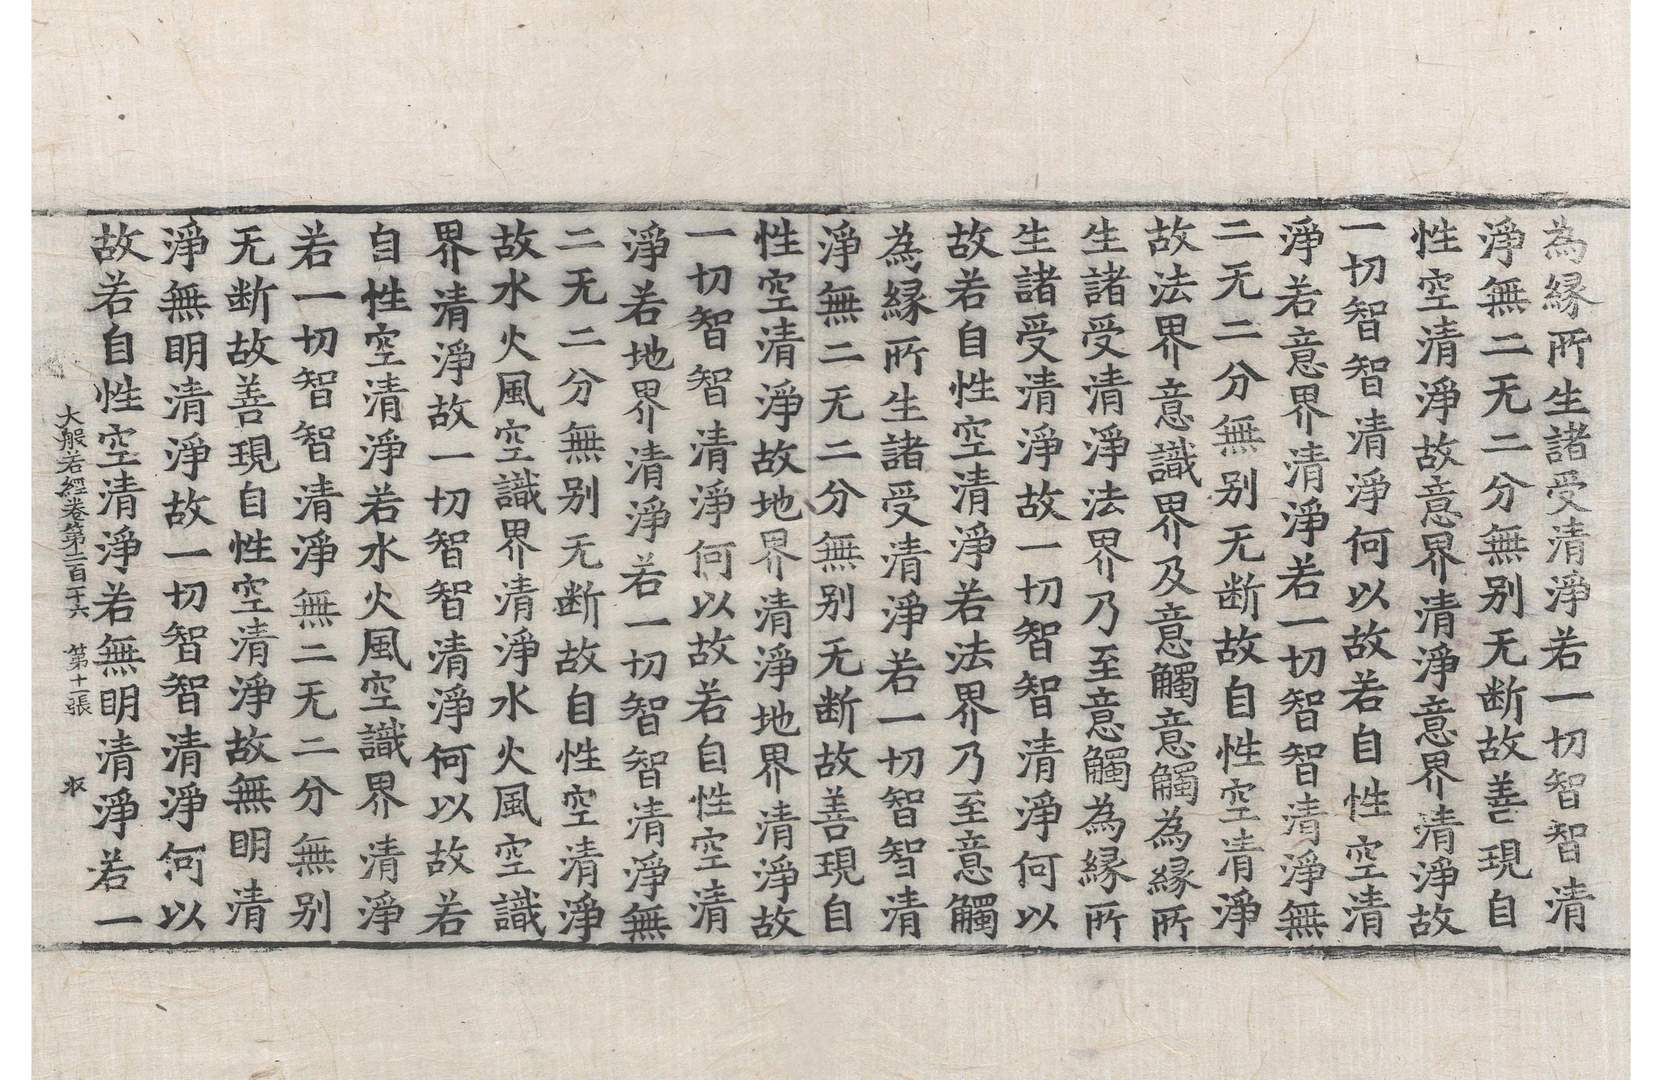 為縁所生諸受清淨若一切智智清
淨無二无二分無别无断故善現自
性空清淨故意界清淨意界清淨故
一切智智清淨何以故若自性空清
淨若意界清淨若一切智智清淨無
二无二分無别无断故自性空清淨
故法界意識界及意觸意觸為縁所
生諸受清淨法界乃至意觸為縁所
生諸受清淨故一切智智清淨何以
故若自性空清淨若法界乃至意觸
為縁所生諸受清淨若一切智智清
淨無二无二分無别无断故善現自
性空清淨故地界清淨地界清淨故
一切智智清淨何以故若自性空清
淨若地界清淨若一切智智清淨無
二无二分無别无断故自性空清淨
故水火風空識界清淨水火風空識
界清淨故一切智智清淨何以故若
自性空清淨若水火風空識界清淨
若一切智智清淨無二无二分無别
无断故善現自性空清淨故無明清
淨無明清淨故一切智智清淨何以
故若自性空清淨若無明清淨若一
大般若經卷第二百一十六 第十一張 収